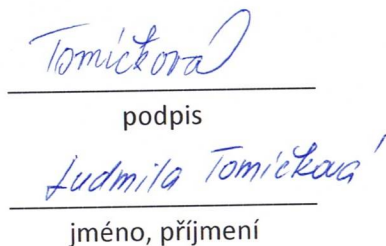 Tomíčková
podpis
Ludmila Tomíčková
jméno, příjmení